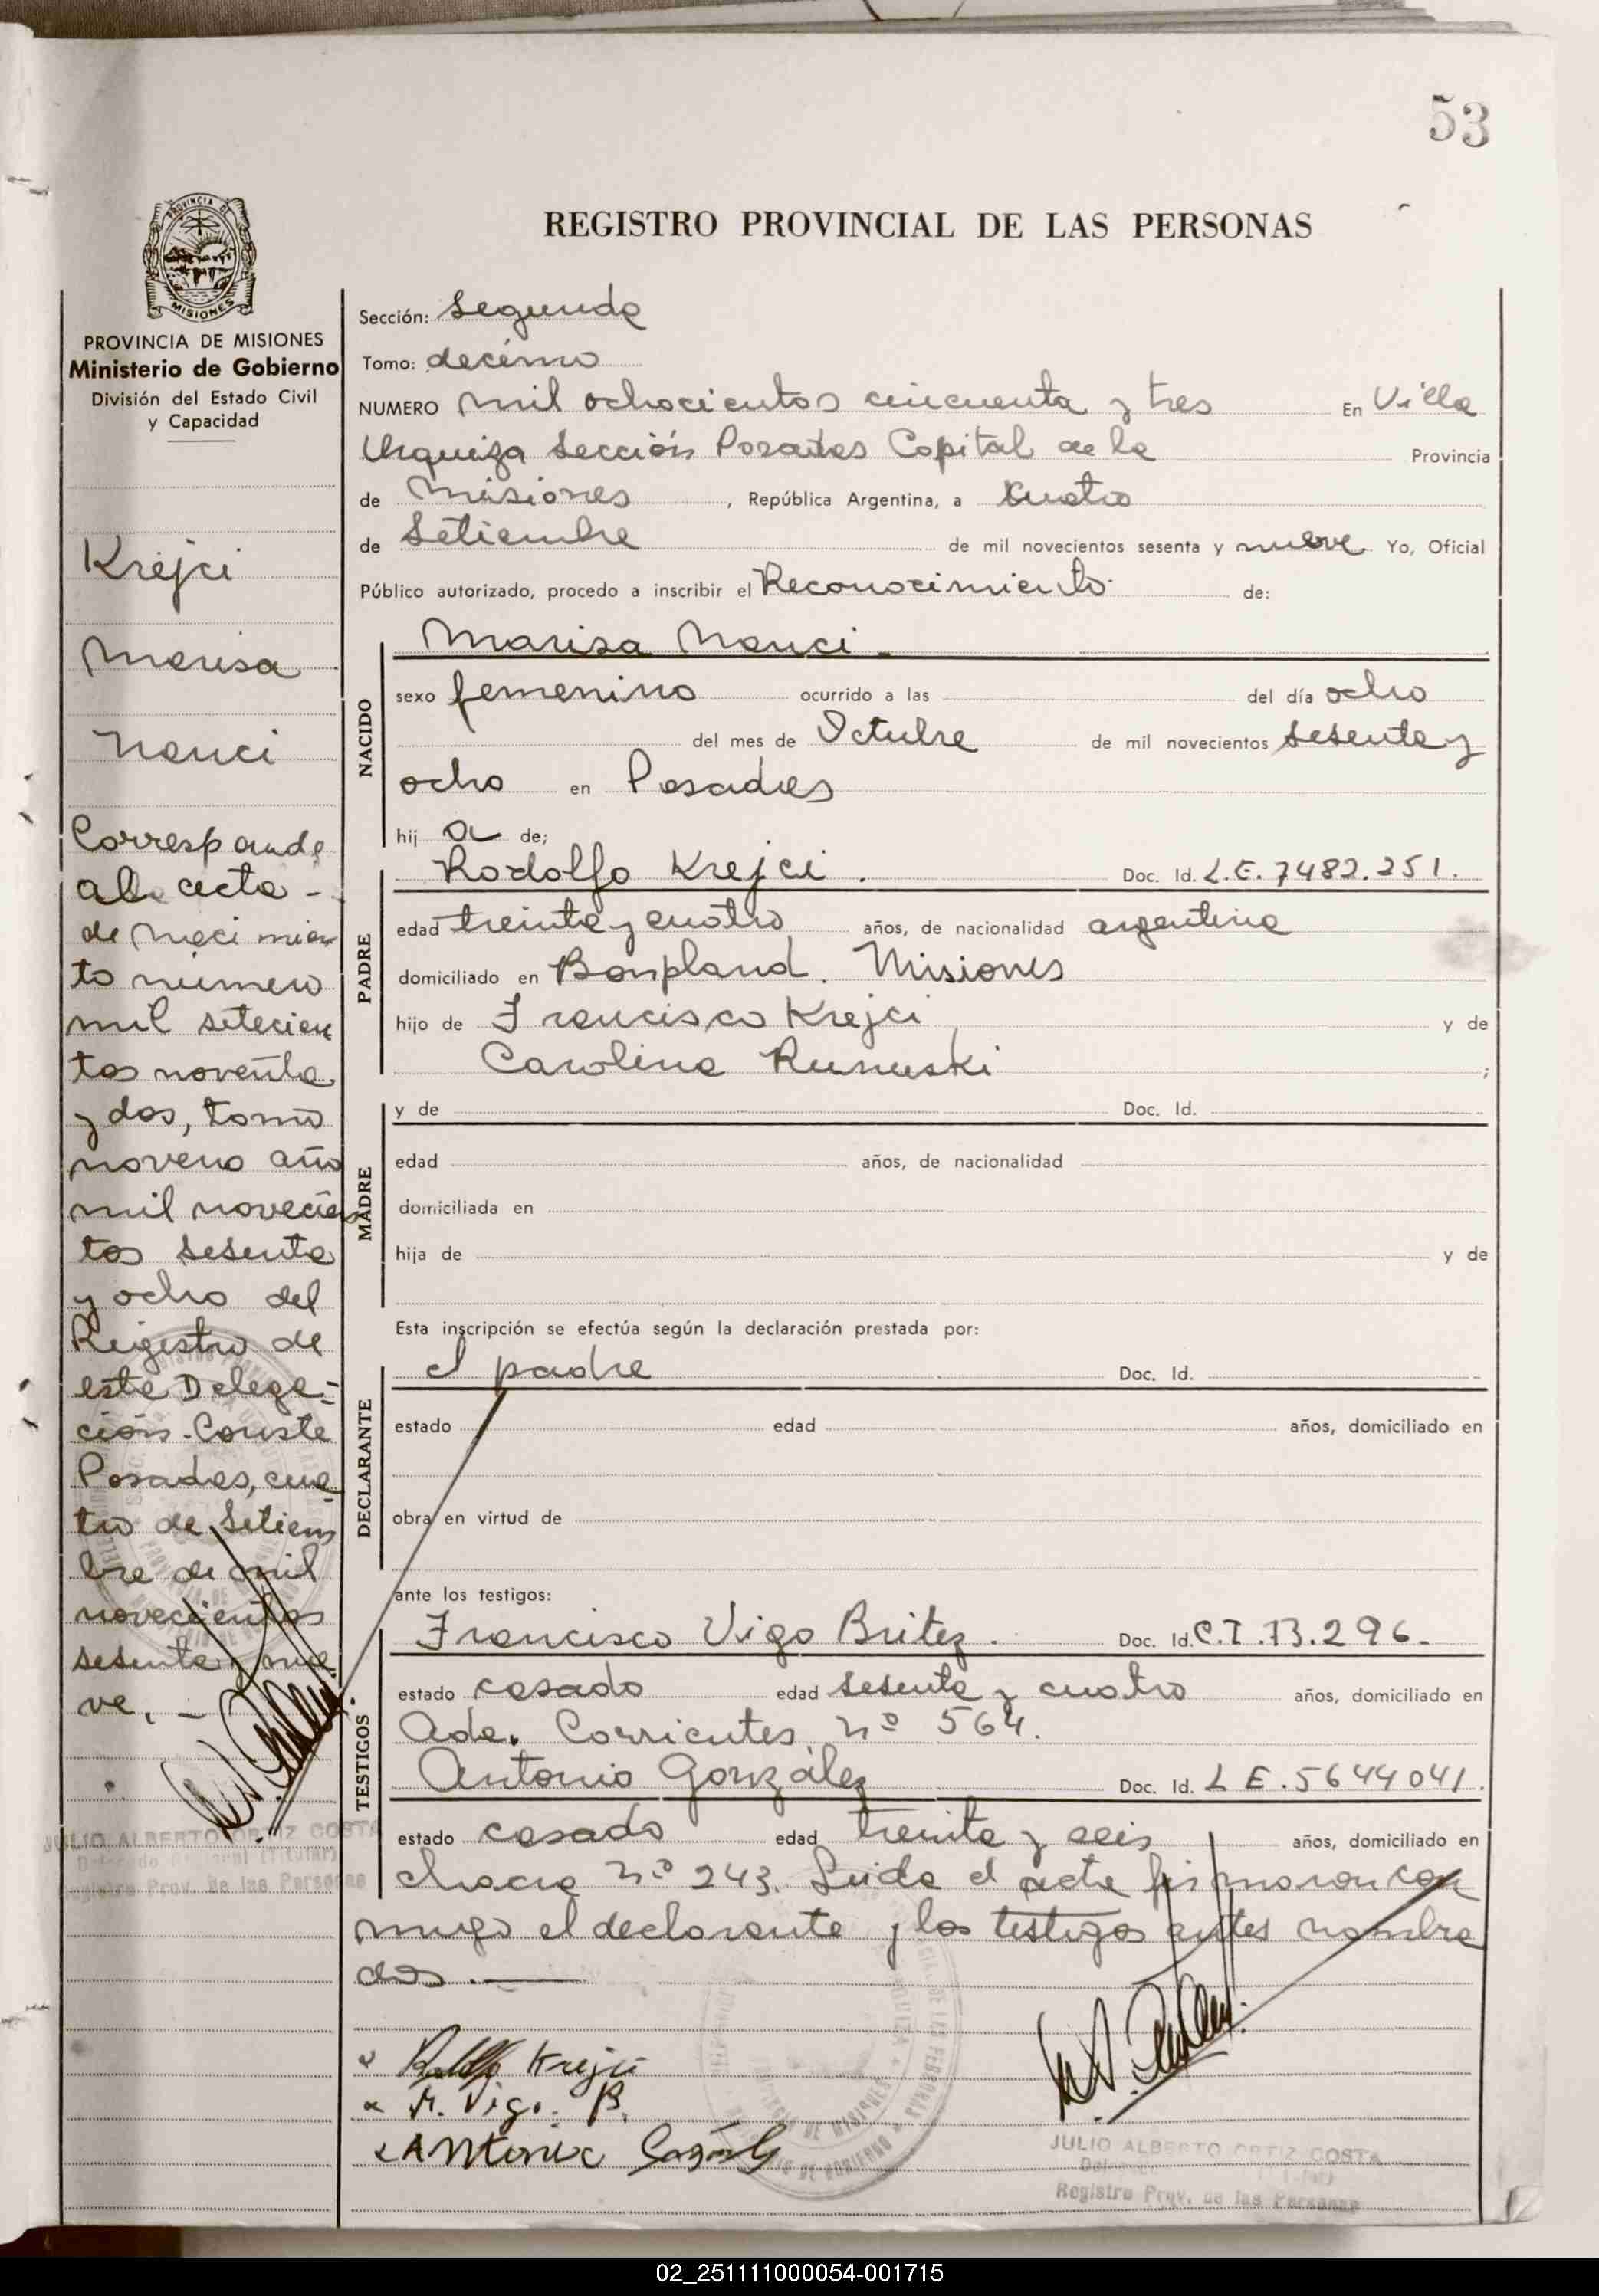 53
REGISTRO PROVINCIAL DE LAS PERSONAS
PROVINCIA DE
MISIONES
PROVINCIA DE MISIONES
Ministerio de Gobierno
División del Estado Civil
y Capacidad
Krejci
Marisa
Nanci
Corresponde
al acta -
de Nacimien
to número
mil setecien
tos noventa
y dos, tomo
noveno año
mil novecien
tos sesenta
y ocho del
Registro de
esta Delega-
ción. Conste
Posadas, cua
tro de Setiem
bre de mil
novecientos
sesenta y nue
ve. -
JULIO ALBERTO ORTIZ COSTA
Registro Prov. de las Personas
Sección: Segunda
Tomo: décimo
NUMERO mil ochocientos cincuenta y tres En Villa
Urquiza Sección Posadas Capital de la Provincia
de Misiones, República Argentina, a cuatro
de Setiembre de mil novecientos sesenta y nueve Yo, Oficial
Público autorizado, procedo a inscribir el Reconocimiento de:
NACIDO
Marisa Nanci -
sexo femenino ocurrido a las del día ocho
del mes de Octubre de mil novecientos sesenta y
ocho en Posadas
hij a de;
PADRE
Rodolfo Krejci. Doc. Id. L.E. 7482.251.
edad treinta y cuatro años, de nacionalidad argentina
domiciliado en Bonpland. Misiones
hijo de Francisco Krejci y de
Carolina ;
MADRE
y de Doc. Id.
edad años, de nacionalidad
domiciliada en
hija de y de
Esta inscripción se efectúa según la declaración prestada por:
DECLARANTE
el padre Doc. Id.
estado edad años, domiciliado en
obra en virtud de
ante los testigos:
TESTIGOS
Francisco Vigo Britez. Doc. Id. C.I. 73.296.
estado casado edad sesenta y cuatro años, domiciliado en
Avda. Corrientes nº 564.
Antonio González Doc. Id. L E. 5644041.
estado casado edad treinta y seis años, domiciliado en
chacra nº 243. Leida el acta firmaron con
migo el declarante y los testigos antes nombra
dos. -
Rodolfo Krejci
F. Vigo. B.
Antonio
JULIO ALBERTO ORTIZ COSTA
Registro Prov. de las Personas
02_251111000054-001715